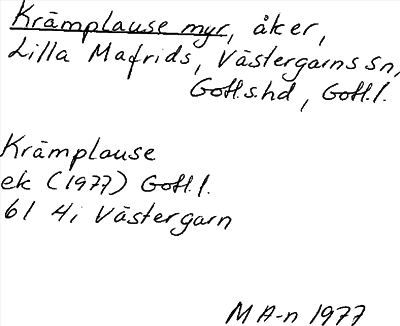 Krämplause myr, åker,
Lilla Mafrids, Västergarns sn,
Gotl.s hd, Gotl. l.
Krämplause
ek (1977) Gotl. l.
6I 4i Västergarn
M A-n 1977